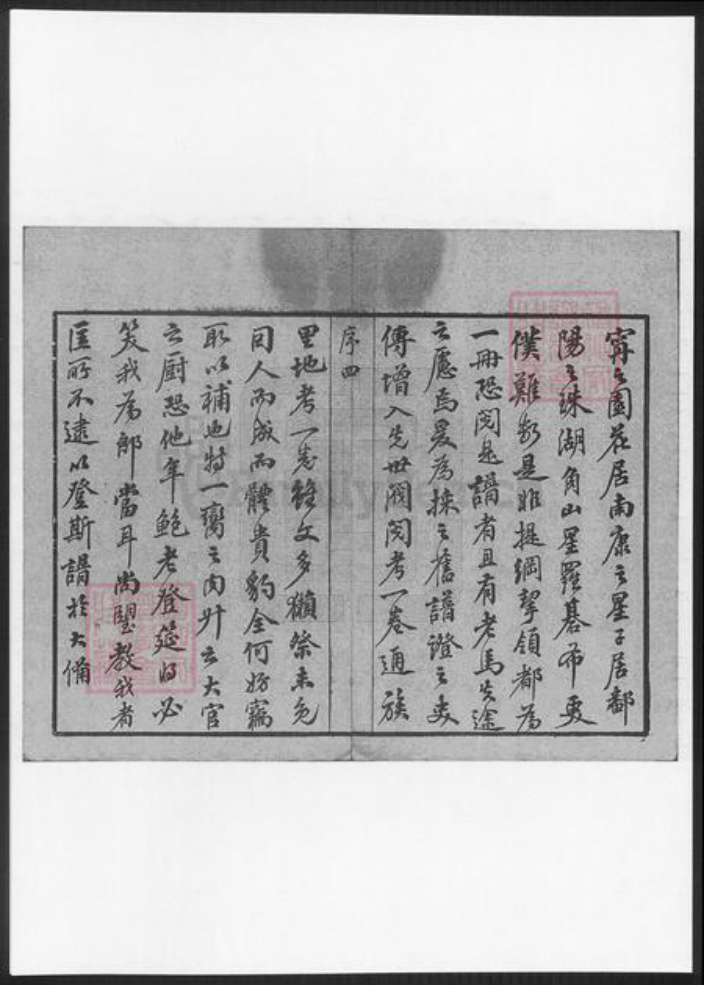 甯之園花居南康之星子居鄱
陽之珠湖角山星羅碁布更
僕難數是非提綱挈領都為
一冊恐閱是譜者且有老馬失途
之慮焉爰為採之舊譜證之史
傳增入先世閥閱考一卷通族
序四
里地考一卷雖文多獺祭未免
因人而成而體貴豹全何妨竊
取以補也特一臠之肉升之大官
之廚恐他年鮑老登筵時必
笑我為郎當耳尚望教我者
匡所不逮以登斯譜於大備